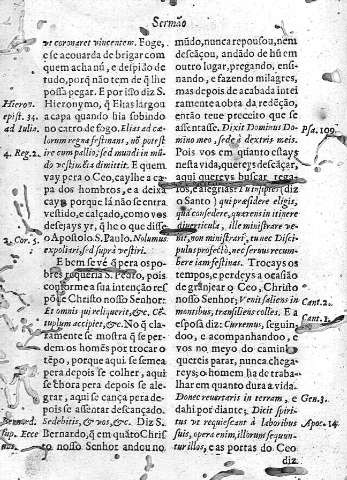 Sermão
vt coronaret vincentem. Foge,
e se acouarda de brigar com
quem acha nú, e despido de
tudo, porq̃ não tem de q̃ lhe
possa pegar. E por isso diz S.
Hieronymo, q̃ Elias largou
a capa quando hia sobindo
no carro de fogo. Elias ad cæ-
lorum regna festinans, nõ potest
ire cum pallio; sed mundi in mũ-
do vestimẽta dimittit. E quem
vay pera o Ceo, caylhe a ca-
pa dos hombros, e a deixa
cayr porque lá não se entra
vestido, e calçado, como vos
desejays yr, q̃ he o que disse
o Apostolo S. Paulo. Nolumus
expoliari, sed supra vestiri.
E bem se vè q̃ pera os po-
bres S. Pedro, pois
conforme a sua intenção res-
põde Christo nosso Senhor:
Et omnis qui reliquerit, &c. Cẽ-
tuplum accipiet, &c. No q̃ cla-
ramente se mostra q̃ se per-
dem os homẽs por trocar o
tẽpo, porque aqui se semea
pera depois se colher, aqui
se chora pera depois se ale-
grar, aqui se cança pera de-
pois se assentar descançado.
Sedebitis, & vos, &c. Diz S.
Bernardo, q̃ em quãto Chris-
to nosso Senhor andou no
Hieron.
epist. 34.
ad Iulia.
4. Reg. 2.
2. Cor. 5.
Bernard.
sup. Ecce
mũdo, nunca repousou, nem
descãçou, andãdo de hũ em
outro lugar, pregando, ensi-
nando, e fazendo milagres,
mas depois de acabada intei-
ramente a obra da redẽção,
então teue preceito que se
assentasse. Dixit Dominus Do-
mino meo, sede à dextris meis.
Pois vos em quanto estays
nesta vida, quereys descãçar,
aqui quereys buscar rega-
los, e alegrias! (diz
o Santo) qui præsidere eligis,
quà consedere, quærens in itinere
diuerticula, ille ministrare ve-
nit, non ministrari, tu nec Disci-
pulus professo, nec seruus recum-
bere iam festinas. Trocays os
tempos, e perdeys a ocasião
de grangear o Ceo, Christo
nosso Senhor; Venit saliens in
montibus, transiliens colles. E a
esposa diz: Curremus, seguin-
doo, e acompanhandoo, e
vos no meyo do caminho
quereis parar, nunca chega-
reys; o homem ha de traba-
lhar em quanto dura a vida.
Donec reuertaris in terram, e
dahi por diante; Dicit Spiri-
tus vt requiescant à laboribus
suis, opera enim, illorum sequun-
tur illos, e as portas do Ceo
diz
Psa. 109.
Cant. 2.
Cant. 1.
Gen. 3.
Apoc. 14.